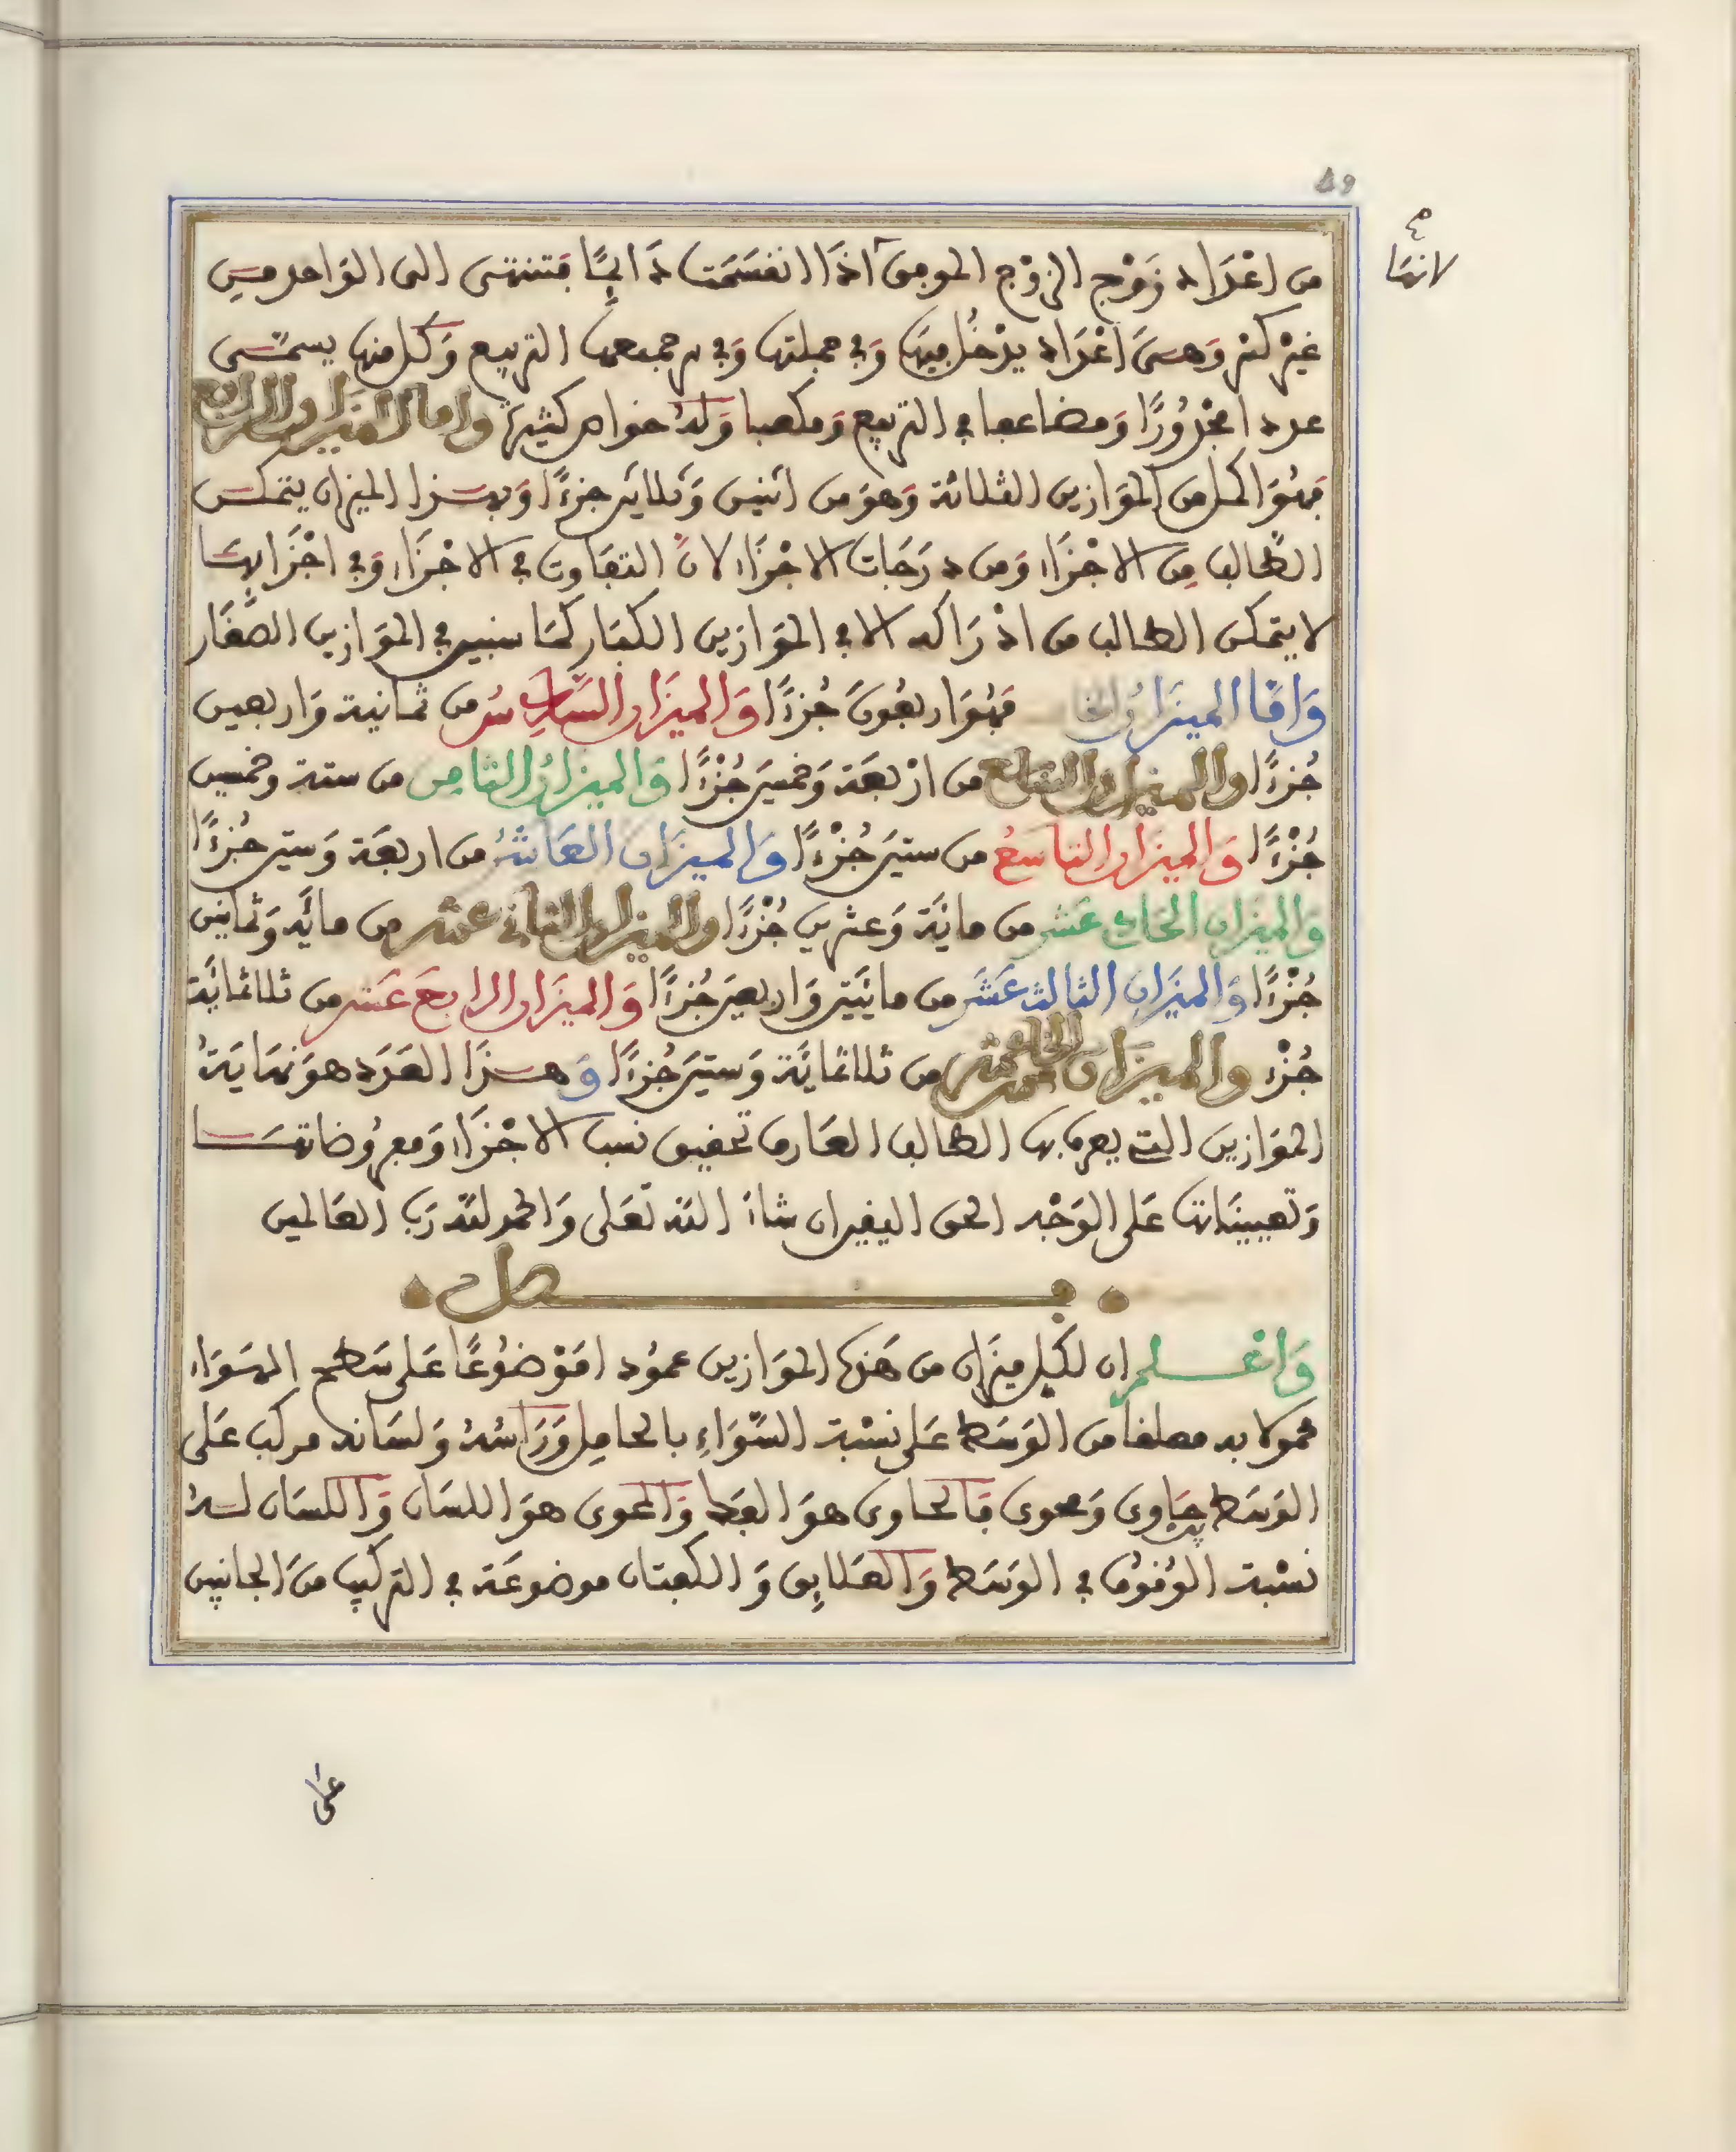 49
لانها
من اعْدَاد زَوْج الزوْج الموجى اذَا انقسَمَت دَايمًا فتنتهى الى الوَاحد مِن
غيْر كسْر وَهىَ اعْدَاد يدْخل فيهَا وَفى جملتها وَفى جميعها التربيع وَكل منها يسمّى
عددا مجْذورًا وَمضاعفا فى التربيع وَمكعبا وَلهُ خواص كثيرة واما الميزان الرابع
فهُوَ اكمل من الموَازين الثلاثة وَهوَ من اثنين وَثلاثين جزءًا وَبهذا الميزان يتمكن
الطالب مِن الاجْزَاء وَمن دَرَجَات الاجْزَاء لانّ التفَاوت فى الاجْزَاء وَفى اجْزَايهَا
لا يتمكن الطالب من ادْرَاكه الا فى الموَازين الكبَار كمَا سنبين فى الموَازين الصغَار
وَامّا الميزَانُ الخا فهُوَ اربعُونَ جُزءًا وَالميزَان السَّادِسُ من ثمانية وَاربعين
جُزءًا والميزان السابع من ارْبعَة وَخمسينَ جُزْءًا وَالميزانُ الثامِن من ستة وخمسين
جُزْءًا وَالميزان التاسعُ من ستينَ جُزْءًا وَالميزَان العَاشرُ من اربعَة وَستين جُزءًا
وَالميزان الحَادى عَشر من مائَة وَعشرين جُزْءًا والميزان الثانى عشر من مائَة وَثمانين
جُزْءًا وَالميزَان الثالث عَشَر من مائتين وَاربعينَ جُزءًا وَالميزَان الرابعَ عَشر من ثلاثمائَة
جُزْء والميزَان الخامس عشر من ثلاثمائَة وَستينَ جُزءًا وَهذَا العَدَد هوَ نهَايَة
الموَازين التى يعرف بها الطالب العَارف تحقيق نسب الاجْزَاء وَمعرُوضاتهَا
وَتعيينَاتها عَلى الوَجْه الحق اليقين ان شاءَ اللّه تعَلى وَالحمد للّه رَب العَالمين
فصل
وَاعْلم ان لكل ميزَان من هَذه الموَازين عمُودا مَوْضوُعًا عَلى سَطح الهوَاء
محمولا به مطلقا من الوَسَط عَلى نسْبة السَّوَاءِ بالحامِل وَرَاسُهُ وَلسَانه مركب عَلى
الوَسَط بحَاوى وَمحوى فَالحاوى هوَ القطب وَالمحوى هوَ اللسَان وَاللسَان لهُ
نسْبة الوُقوُف فى الوَسَط وَالعَلايِق وَ الكفتان موضوعَة فى التركيب منَ الجانبين
على